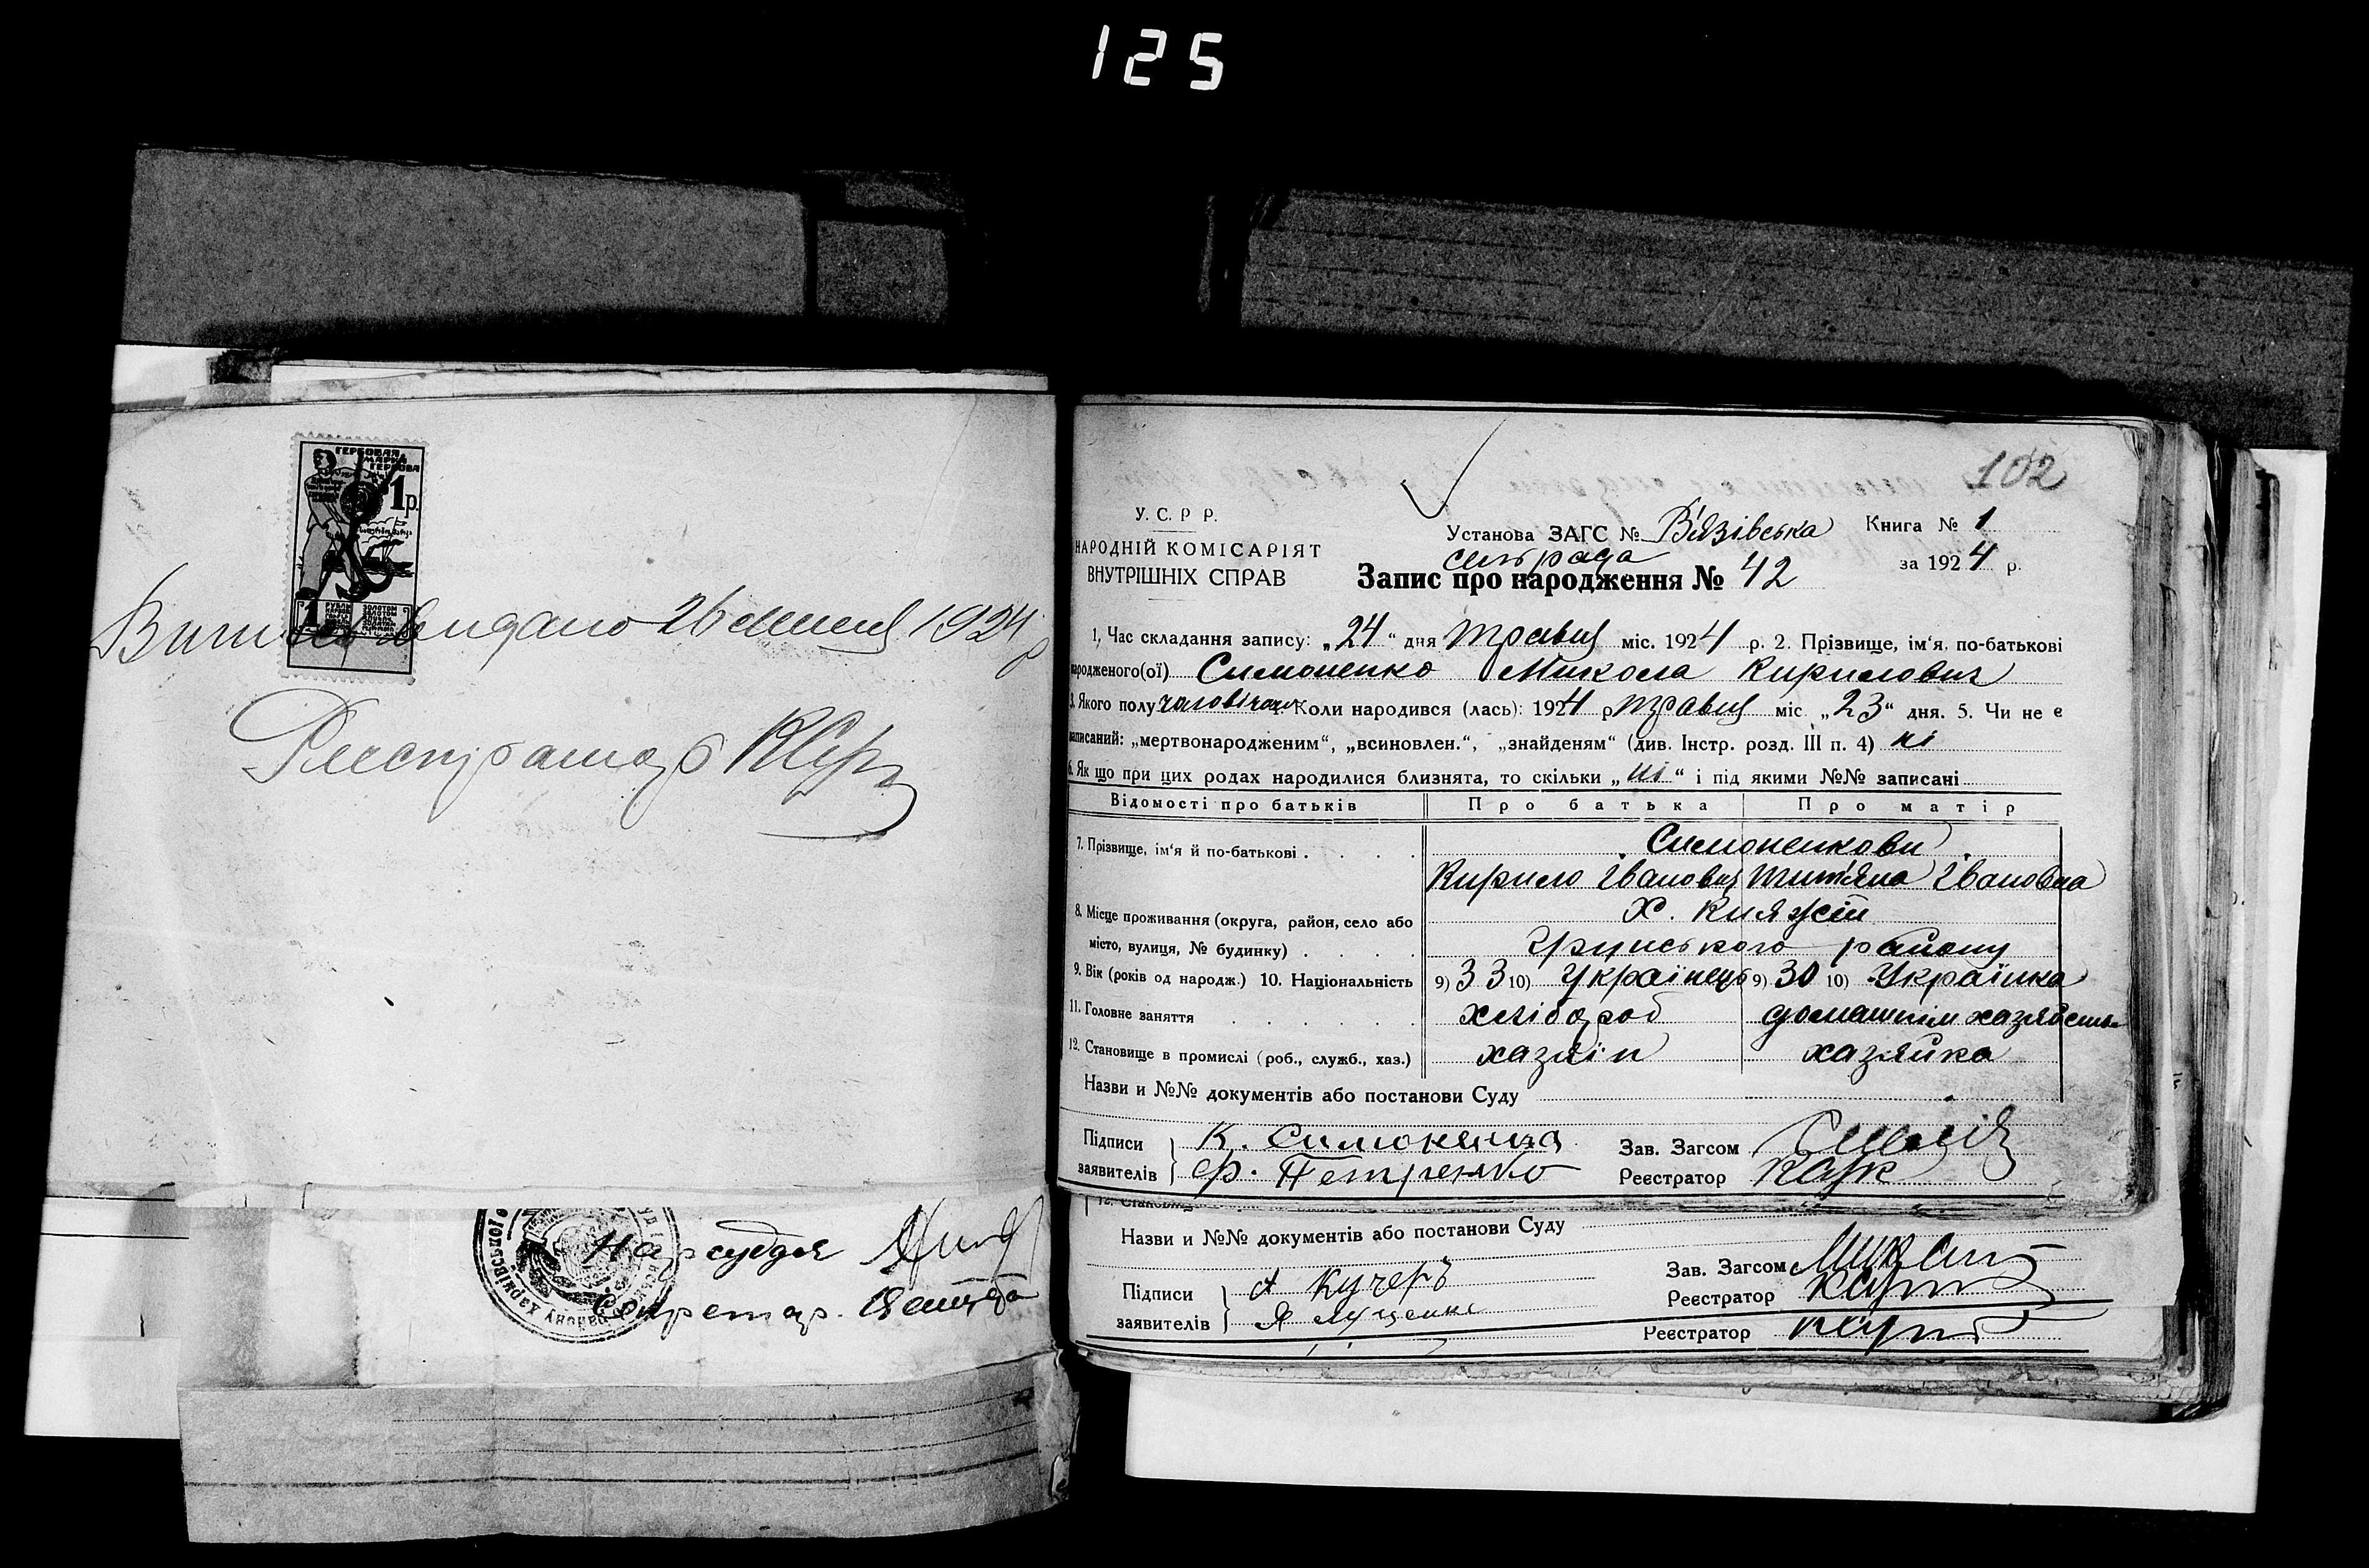 125
ГЕРБОВАЯ
МАРКА
ГЕРБОВА
1р.
1
видано 26 1924 р
Реєстратор
Нарсуддя
Секретар.
102
У. С. Р Р.
НАРОДНІЙ КОМІСАРІЯТ
ВНУТРІШНІХ СПРАВ
Установа ЗАГС № Вязівська
сельрада
Книга № 1
за 1924 р.
Запис про народження № 42
1, Час складання запису: „24“ дня травня міс. 1924 р. 2. Прізвище, ім‘я, по-батькові
народженого(ої) Симоненко Микола Кирилович
3. Якого полу чоловічого 4. Коли народився (лась): 1924 р травня міс. „23“ дня. 5. Чи не є
записаний: „мертвонародженим“, „всиновлен.“, „знайденям“ (див. Інстр. розд. III п. 4) ні
6. Як що при цих родах народилися близнята, то скільки „ні“ і під якими №№ записані
Відомості про батьків Про батька Про матір
7. Прізвище, ім‘я й по-батькові . . . . Симоненкови
Кирило Іванович Титяна Івановна
8. Місце проживання (округа, район, село або Х. Княжей
місто, вулиця, № будинку) . . . . Грунського району
9. Вік (років од народж.) 10. Національність 9) 33 10) Українець 9) 30 10) Українка
11. Головне заняття . . . . . хлібороб домашнім
12. Становище в промислі (роб., служб., хаз.) хазяїн хазяйка
Назви и №№ документів або постанови Суду
Підписи
заявителів
К. Симоненко
Ф. Петренко
Зав. Загсом
Реєстратор
12. Становище
Назви и №№ документів або постанови Суду
Підписи
заявителів
А Кучеръ
Я Луценко
Зав. Загсом
Реєстратор
Реєстратор